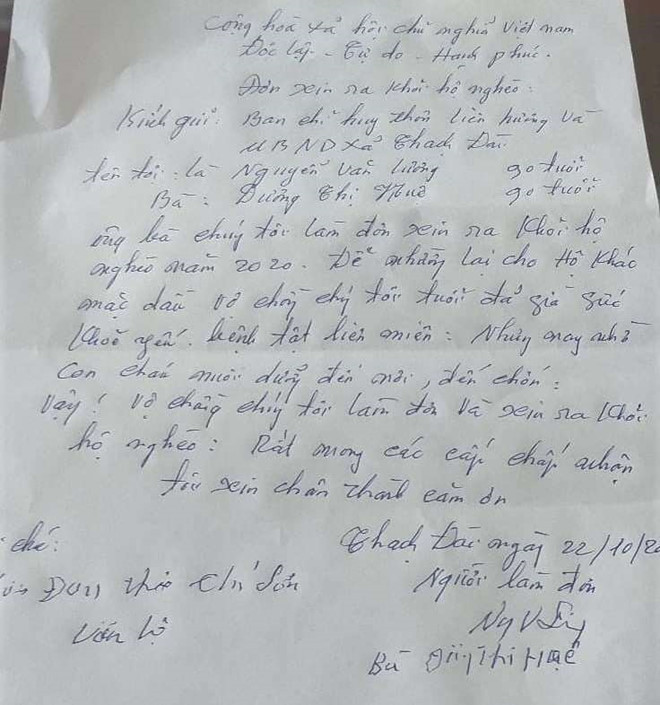 Cộng hoà xã hội chủ nghĩa Việt nam
Độc lập - Tự do - Hạnh phúc.
Đơn xin ra khỏi hộ nghèo:
Kính gửi: Ban chỉ huy thôn liên hương và
UBND xã Thạch Đài
tên tôi: là Nguyễn Văn lương 90 tuổi
Bà: Dương Thị 90 tuổi
ông bà chúng tôi làm đơn xin ra khỏi hộ
nghèo năm 2020. Để nhường lại cho Hộ khác
mặc dầu vợ chồng chúng tôi tuổi đã già sức
khoẻ yếu. bệnh tật liên miên: Nhưng may nhờ
con cháu nuôi dưỡng đến nơi, đến chốn:
Vậy! vợ chồng chúng tôi làm đơn và xin ra khỏi
hộ nghèo: Rất mong các cấp chấp nhận
tôi xin chân thành cảm ơn
Thạch Đài ngày 22/10/20
chú:
Đơn Sơn
Người làm đơn
viết hộ
Bà